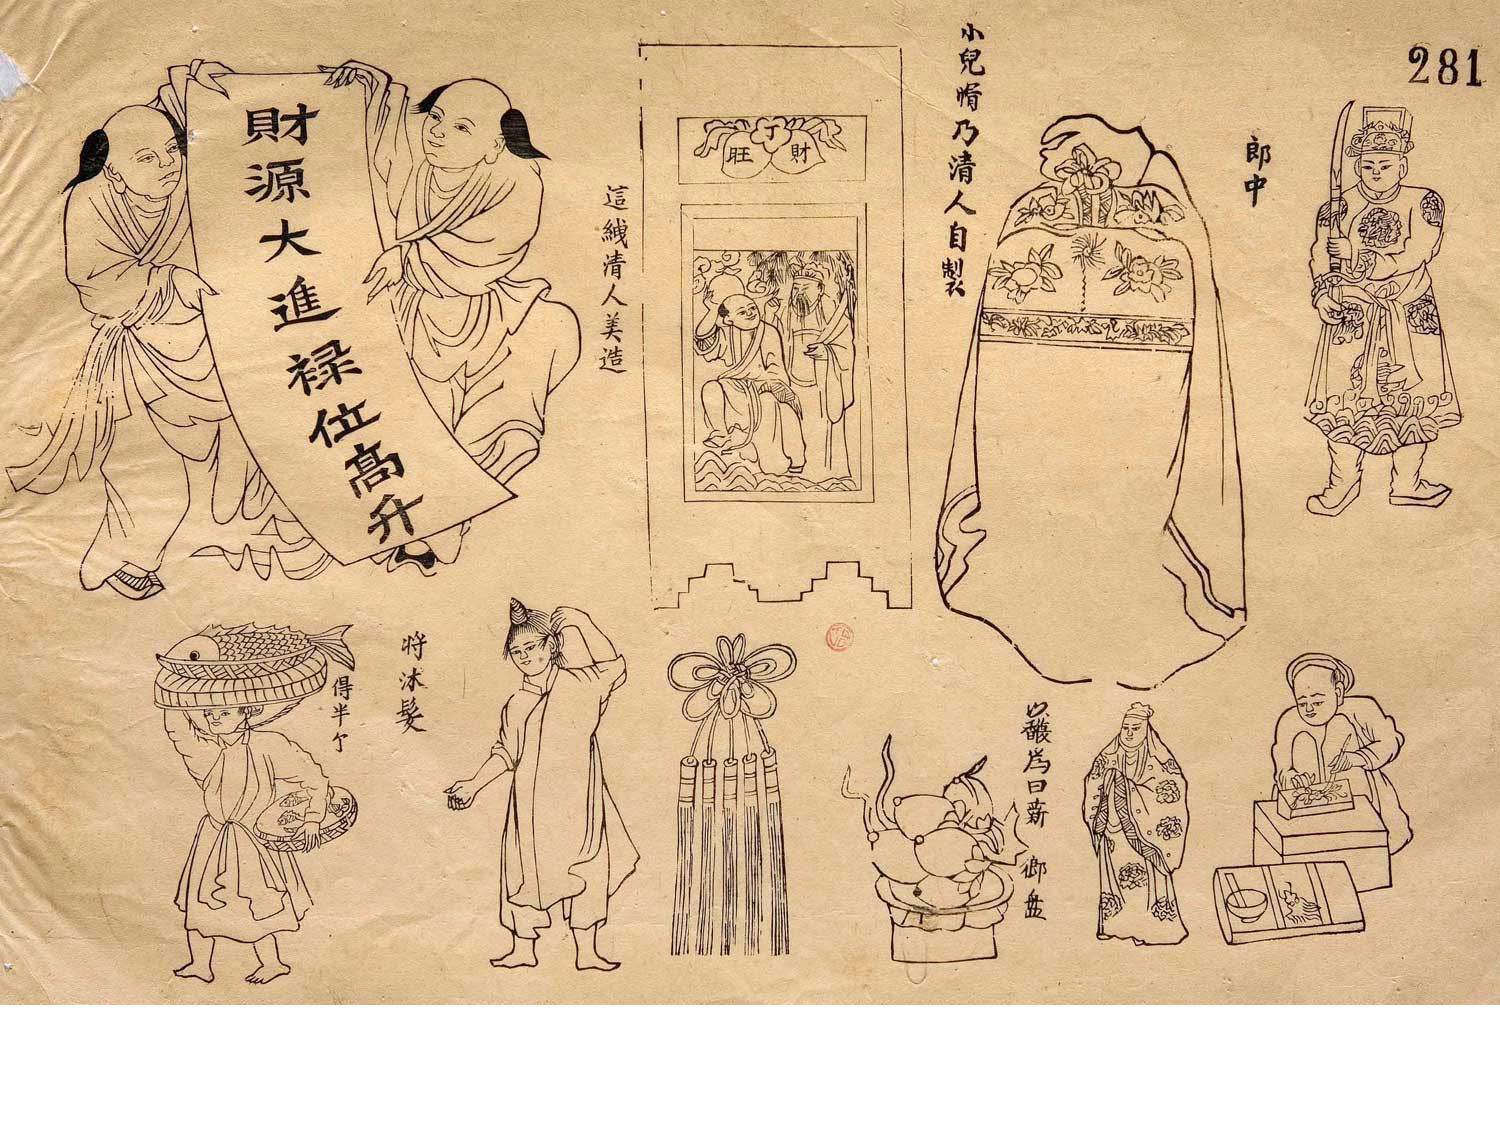 281
財源大進祿位高升
旺丁財
這絨清人美造
小兒帽乃清人自製
郎中
得半个
将沐髮
為曰薪
盘